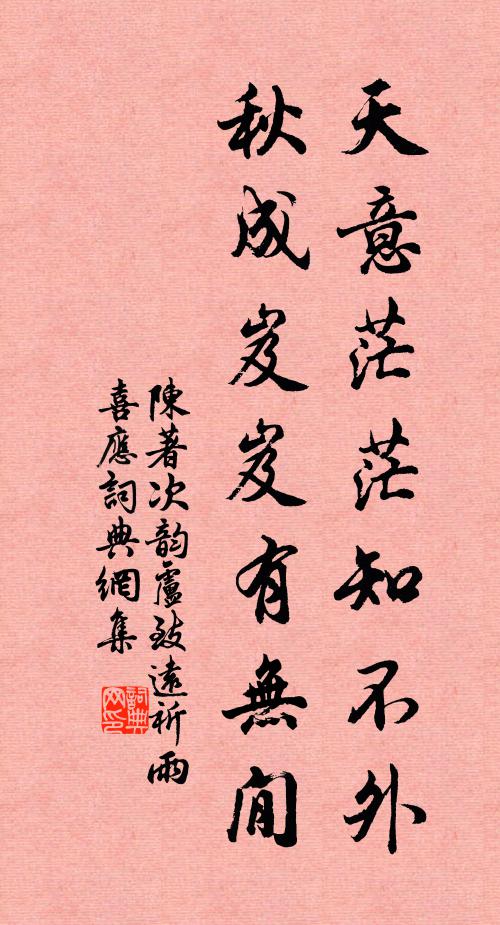 天意茫茫知不外
秋成岌岌有無間
陳著次韵盧致遠祈雨
喜應詞典網集
詞典
网印